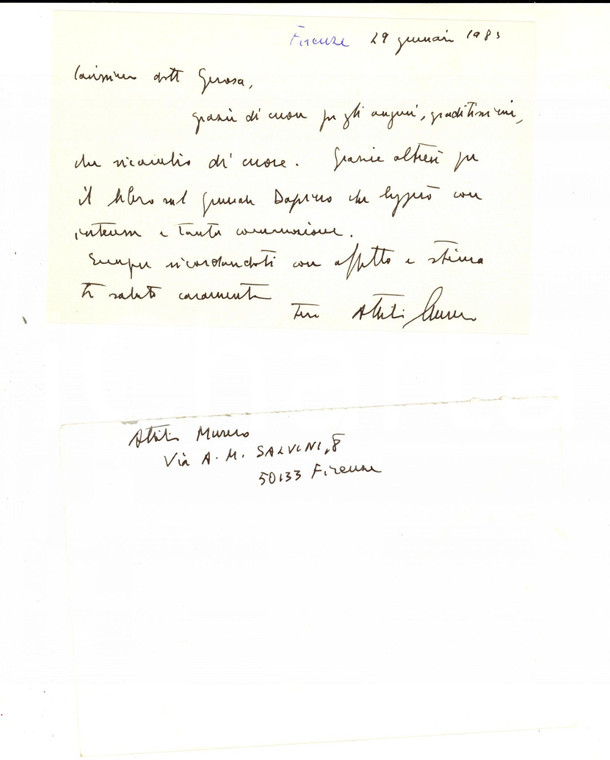 Firenze 29 gennaio 1983
Carissimo dott Gerosa,
grazie di cuore per gli auguri, graditissimi,
che ricambio di cuore. Grazie altresì per
il libro sul generale Dapino che leggerò con
interesse e tanta commozione.
Sempre ricordandoti con affetto e stima
ti saluto caramente
Tuo Attilio
Attilio
Via A. M. SALVINI, 8
50133 Firenze